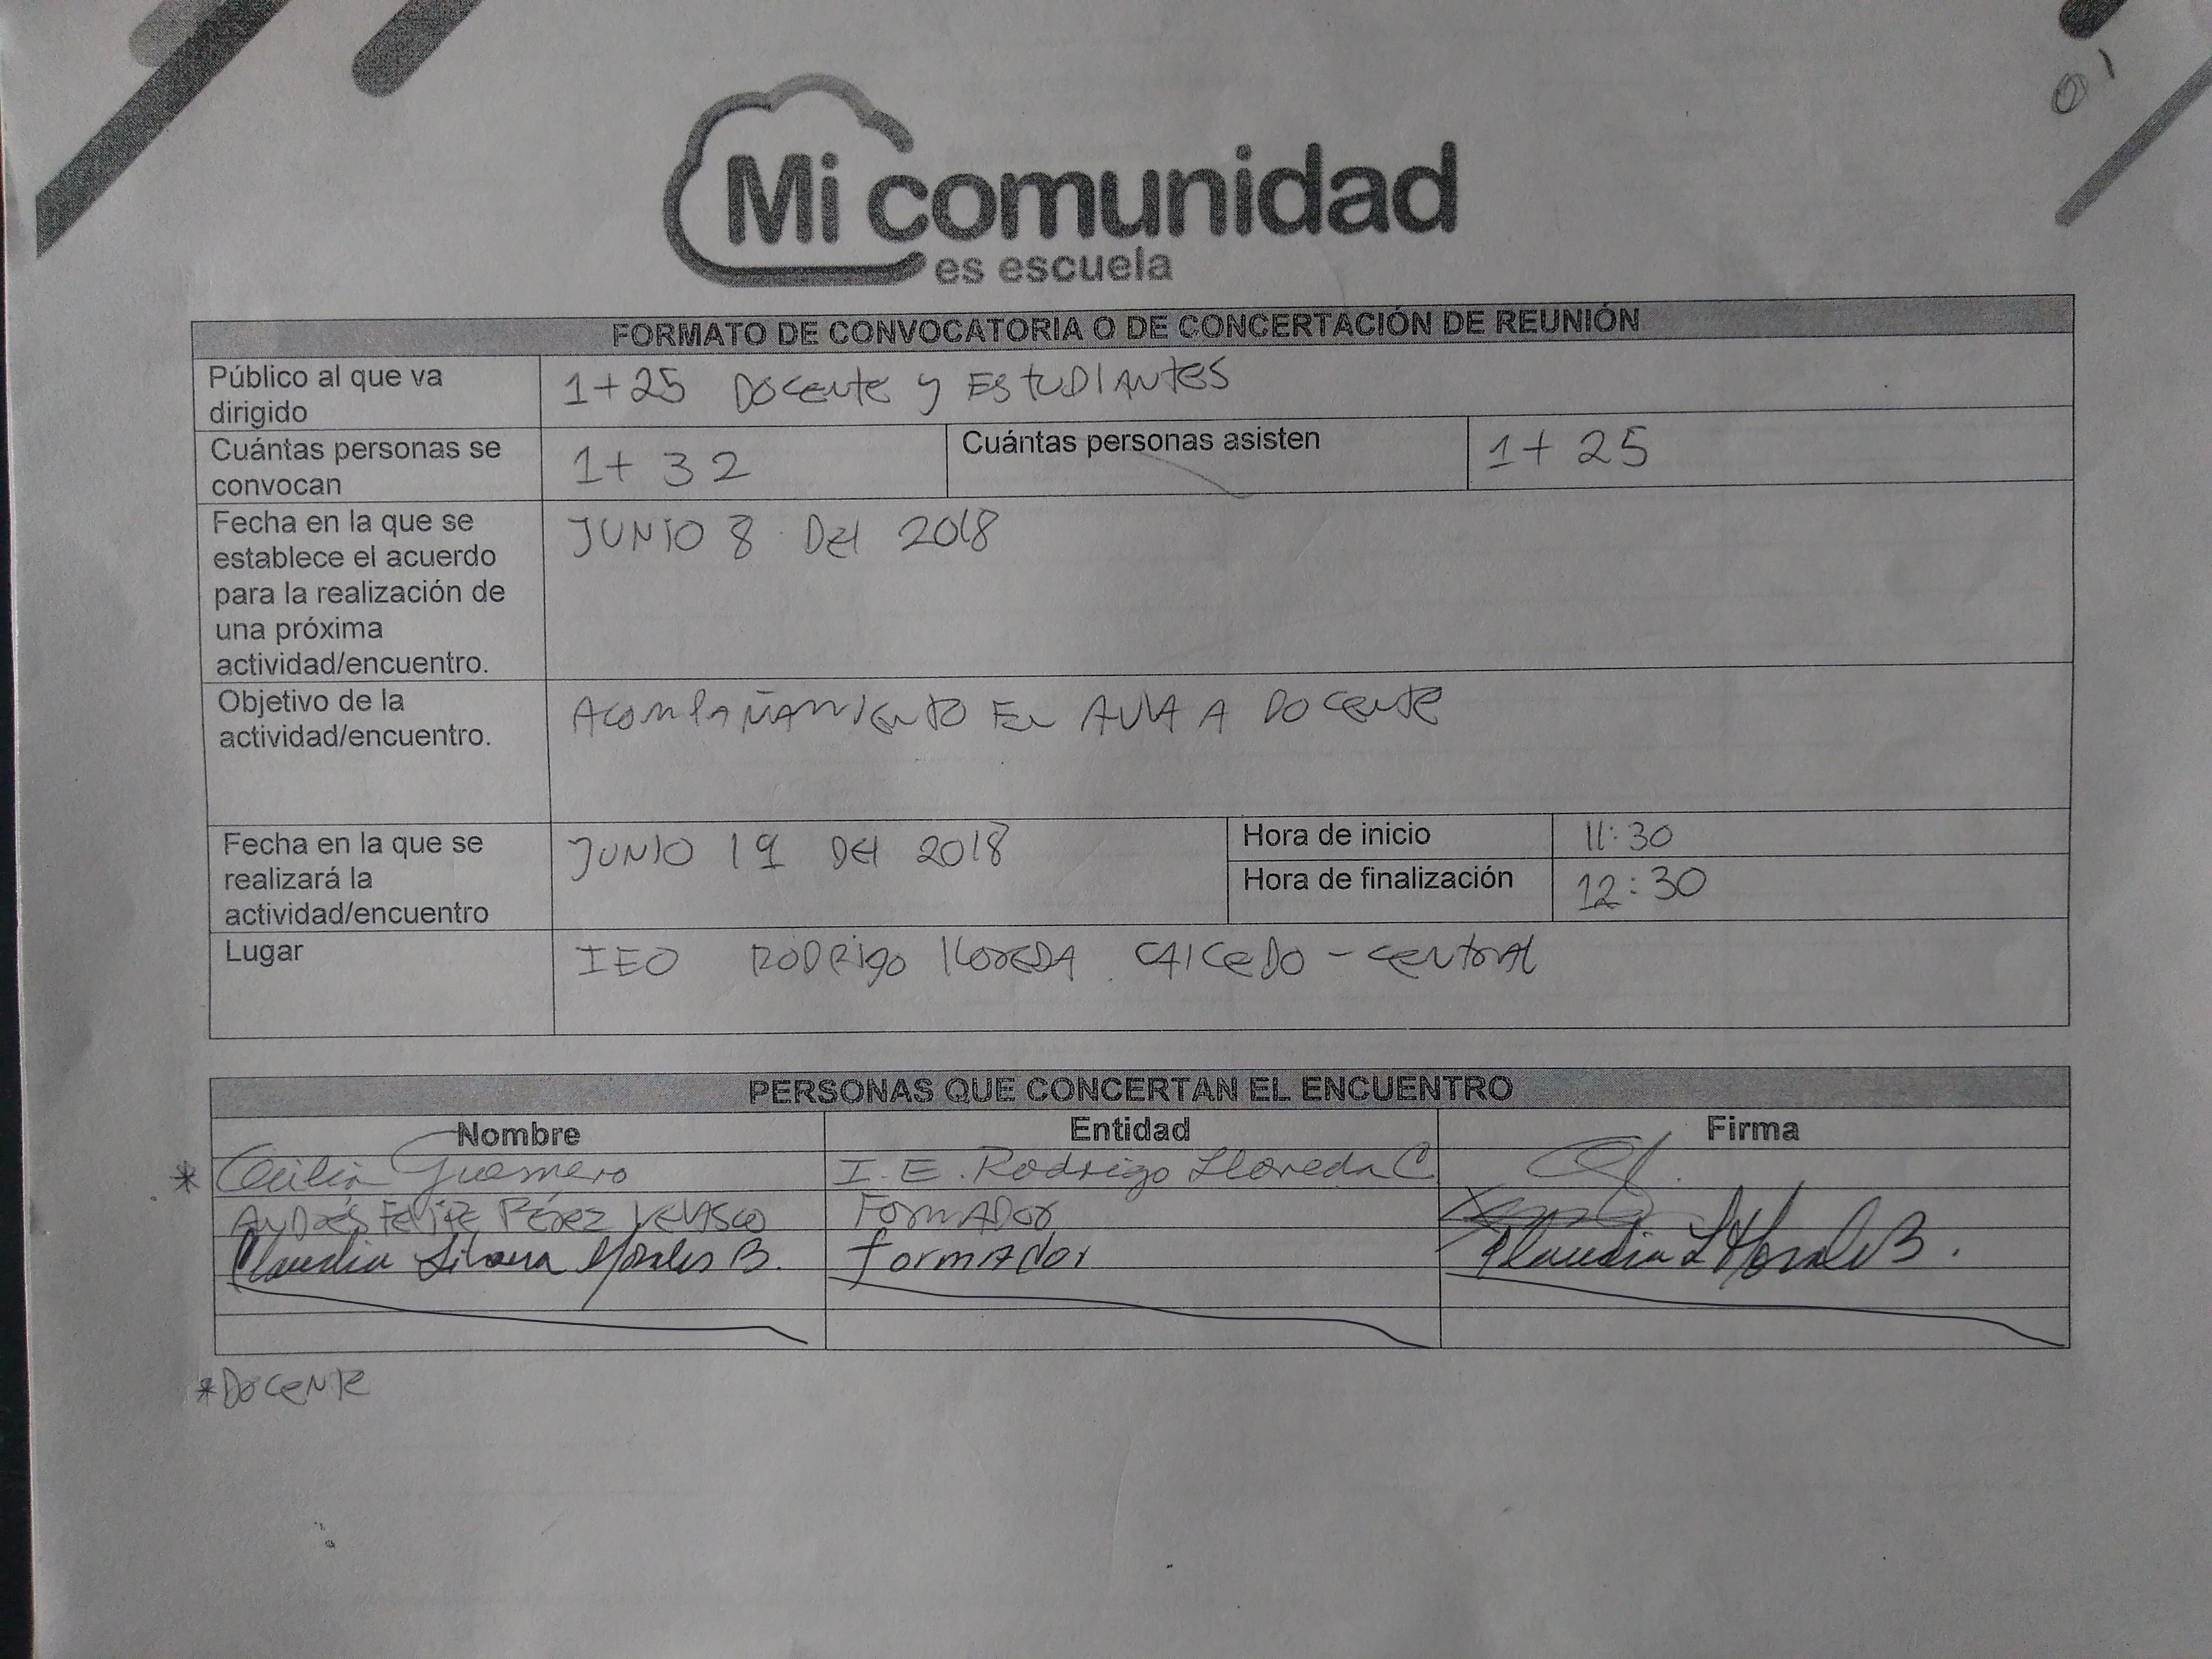 01
Mi comunidad
es escuela
FORMATO DE CONVOCATORIA O DE CONCERTACIÓN DE REUNIÓN
Público al que va
dirigido
1+25 DOCENTE Y ESTUDIANTES
Cuántas personas se
convocan
1+ 32
Cuántas personas asisten
1+ 25
Fecha en la que se
establece el acuerdo
para la realización de
una próxima
actividad/encuentro.
JUNIO 8 DEL 2018
Objetivo de la
actividad/encuentro.
ACOMPAÑAMIENTO EN AULA A DOCENTE
Fecha en la que se
realizará la
actividad/encuentro
JUNIO 19 DEL 2018
Hora de inicio
11:30
Hora de finalización
12:30
Lugar
IEO RODRIGO LLOREDA CAICEDO - CENTRAL
PERSONAS QUE CONCERTAN EL ENCUENTRO
Nombre Entidad Firma
* Cecilia Guerrero I. E. Rodrigo Lloreda C
ANDRÉS FELIPE PÉREZ VELASCO FORMADOR
Claudia Liliana Morales B. formador Claudia L Morales B.
*DOCENTE